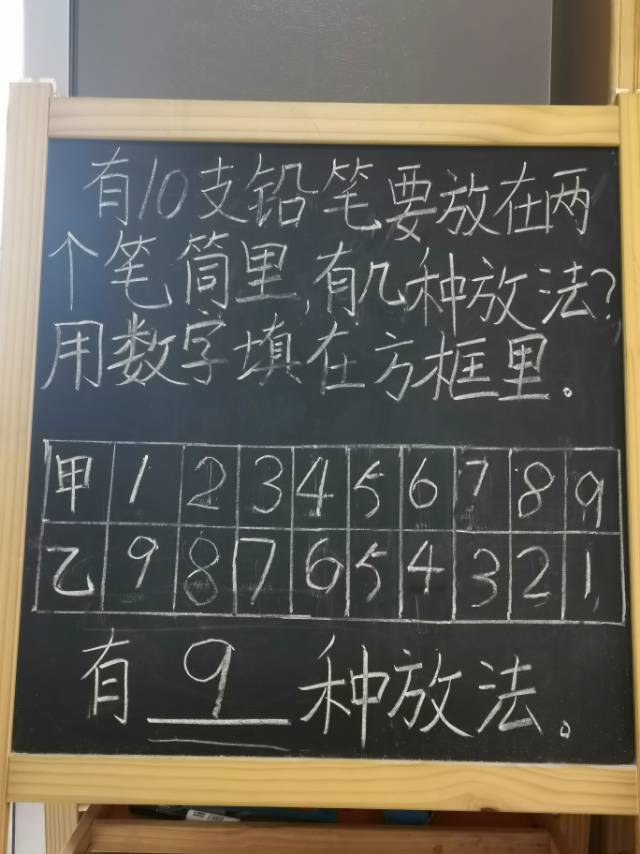 有10支铅笔要放在两
个笔筒里,有几种放法?
用数字填在方框里。
甲 1 2 3 4 5 6 7 8 9
乙 9 8 7 6 5 4 3 2 1
有 9 种放法。